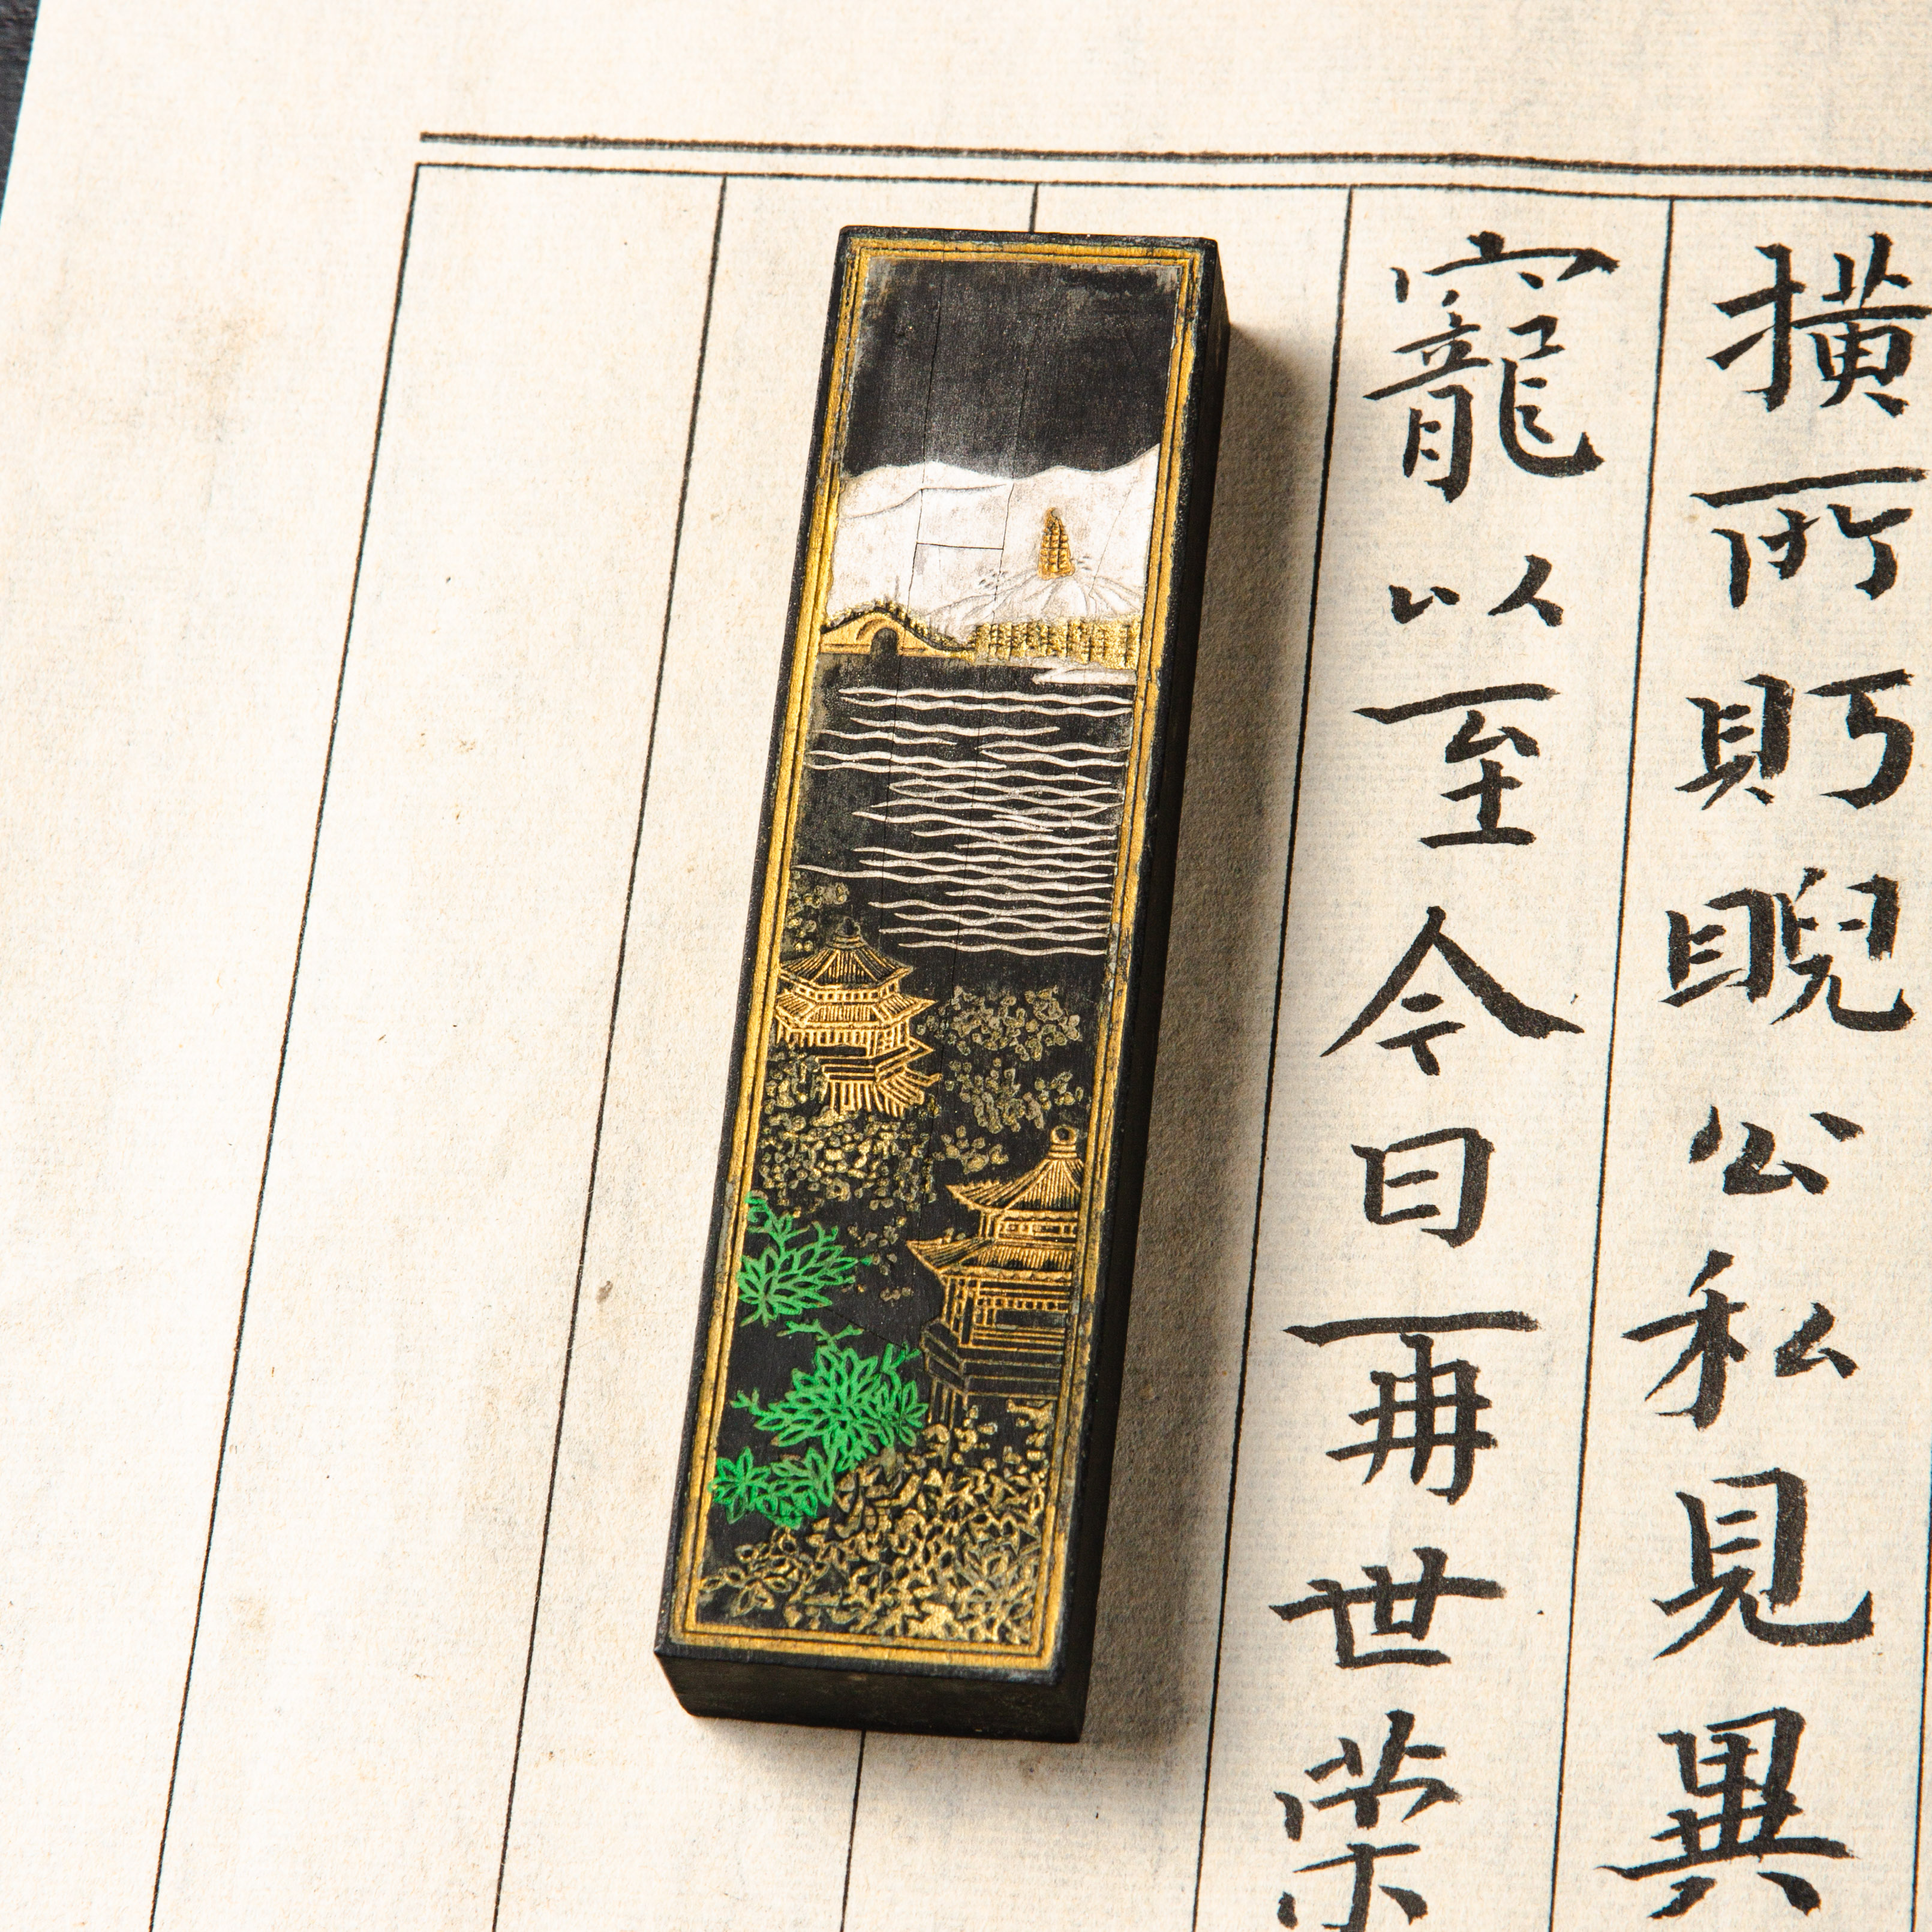 撗所眄睨公私見異
寵以至今日再世荣